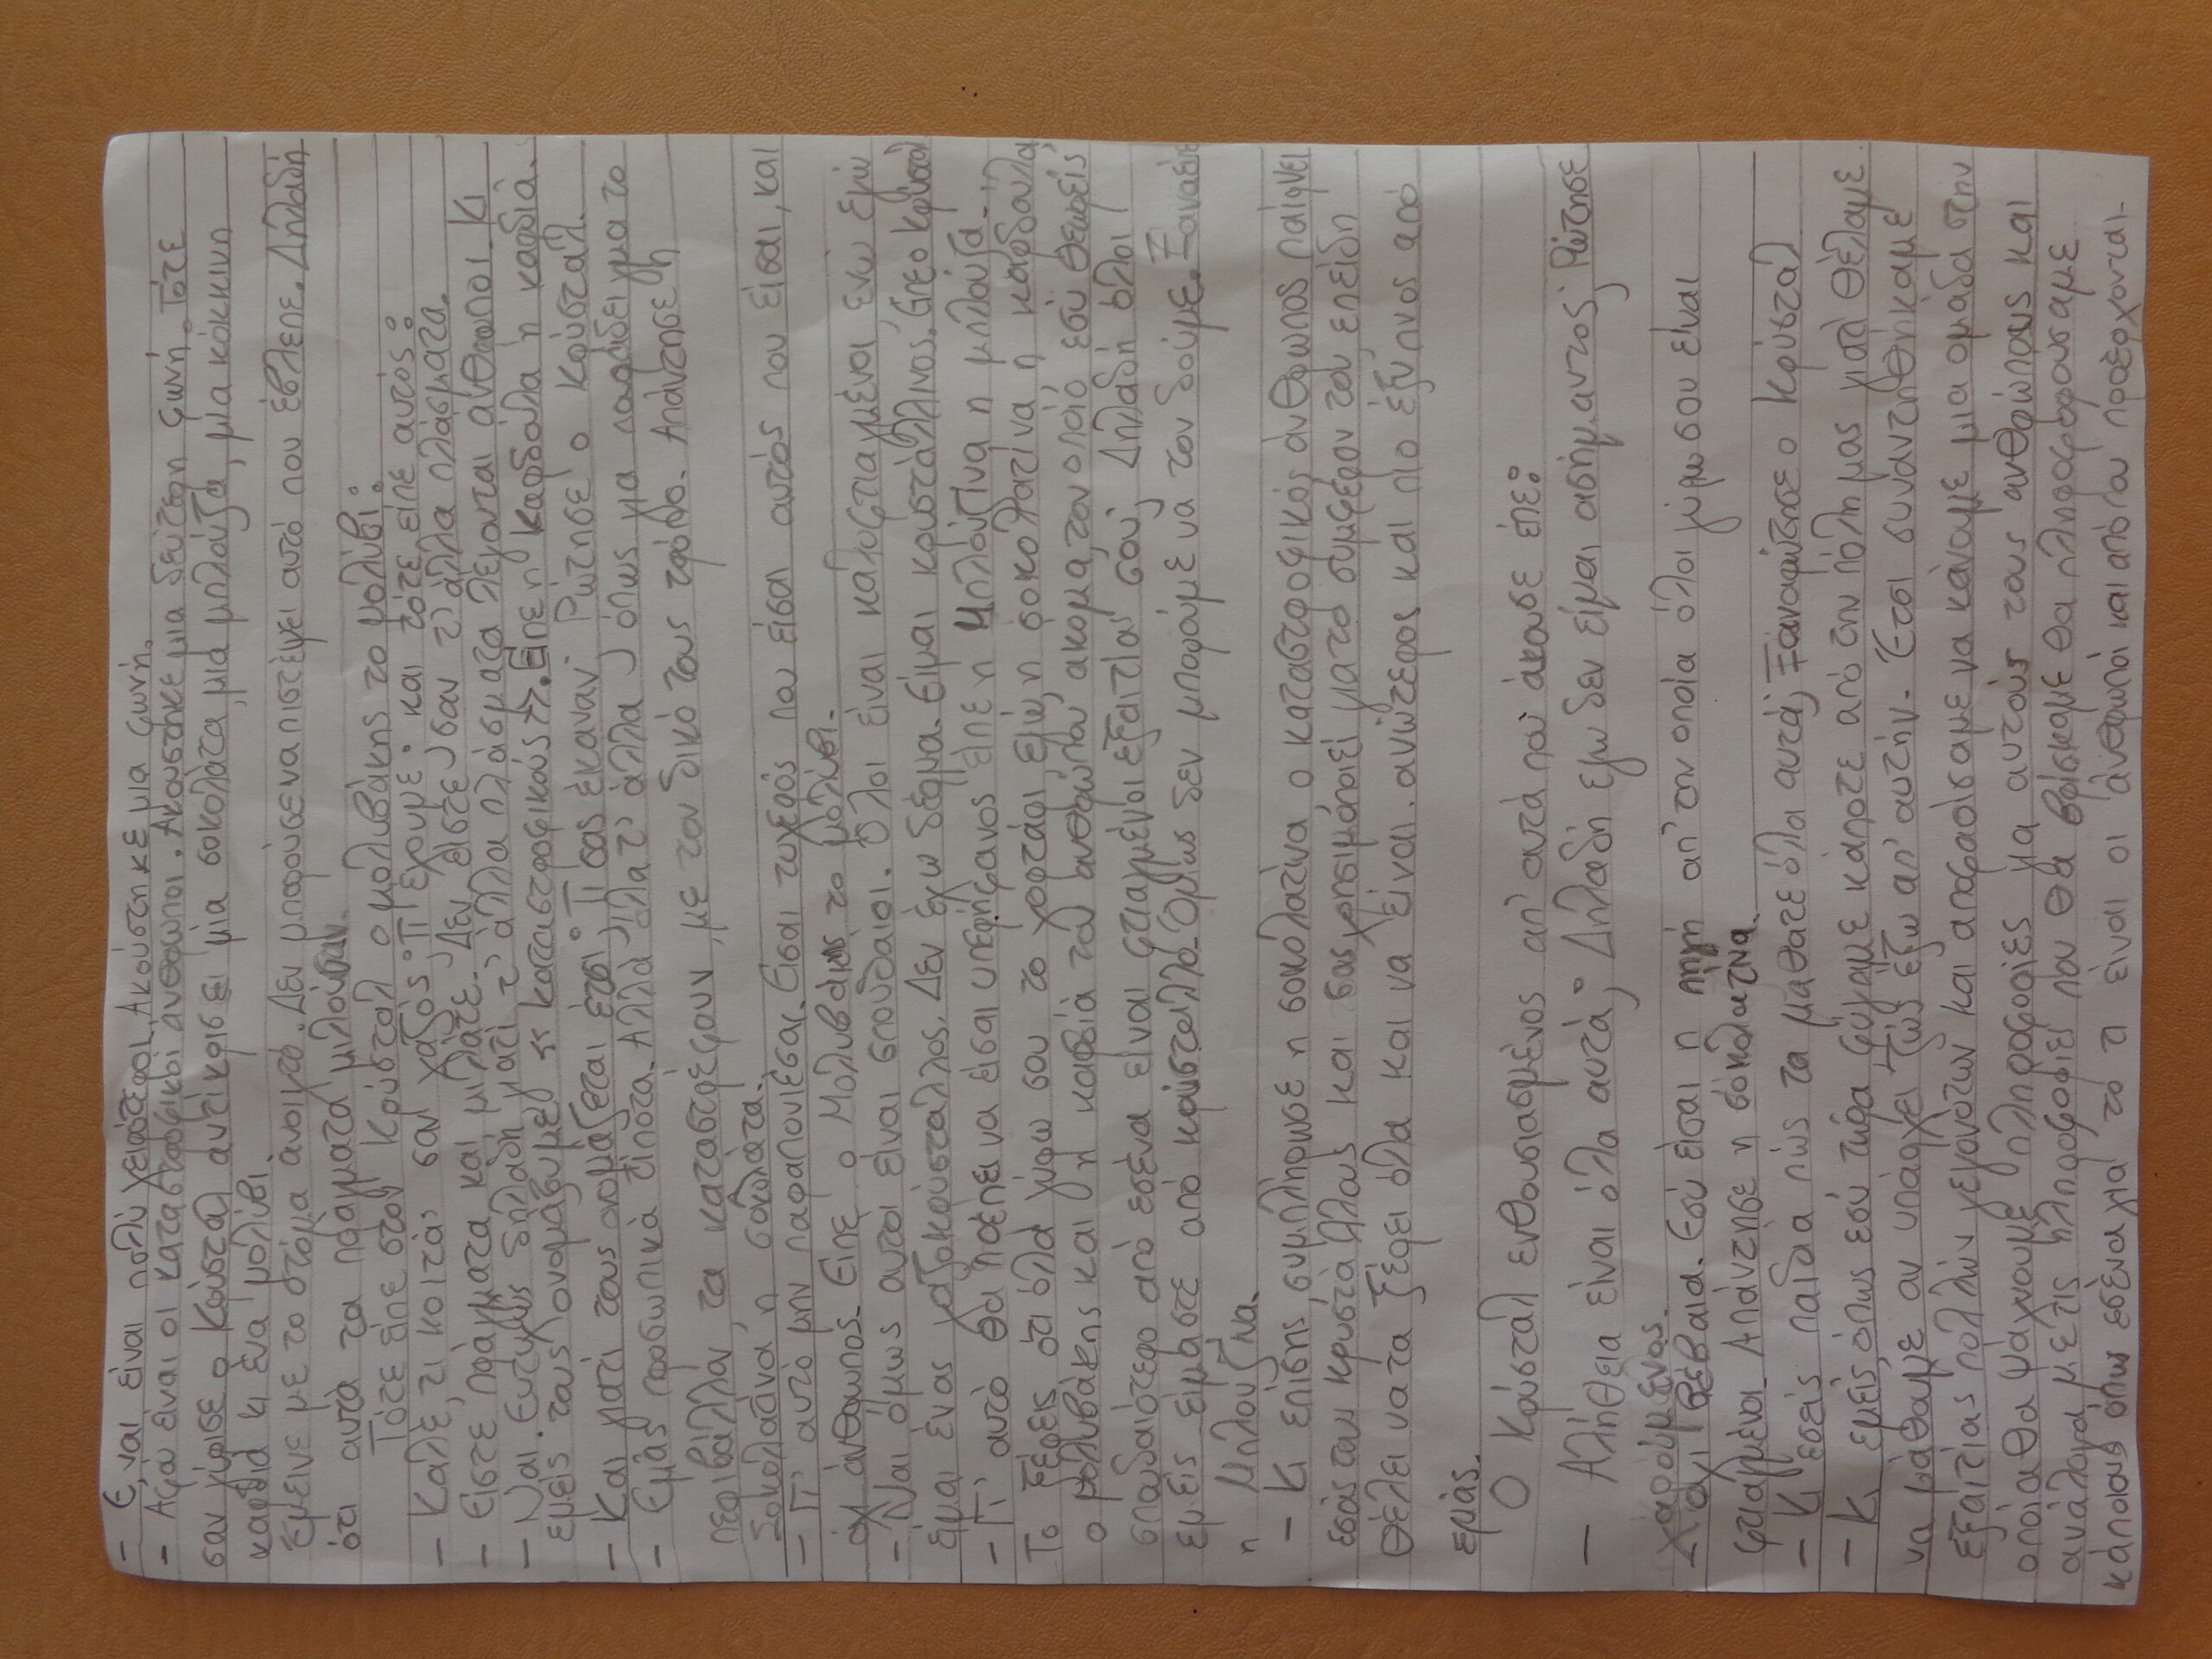 - Ε, ναι είναι πολύ χειρότεροι. Ακούστηκε μια φωνή.
- Αφού είναι οι καταστροφικοί ανθρωποι. Ακουστηκε μια δεύτερη φωνή. Τότε
σαν γύρισε ο Κρύσταλ αντίκρισε μία σοκολάτα, μια μπλούζα, μια κόκκινη
καρδιά κι ένα μολύβι.
Έμεινε με το στόμα ανοιχτό. Δεν μπορούσε να πιστέψει αυτό που έβλεπε. Δηλαδή
ότι αυτά τα πράγματα μιλούσαν.
Τότε είπε στον Κρύσταλ ο μολυβάκης το μολύβι:
- Καλέ, τι κοιτάς σαν χαζός; Τι έχουμε; και τότε είπε αυτός:
- Είστε πράγματα και μιλάτε. Δεν είστε σαν τ' άλλα πλάσματα.
- Ναι. Ευτυχώς δηλαδή γιατί τ' άλλα πλάσματα λέγονται άνθρωποι. Κι
εμείς τους ονομάζουμε << καταστροφικούς>>. Είπε η Καρδούλα η καρδιά.
- Και γιατί τους ονομάζεται έτσι; Τι σας έκαναν; Ρώτησε ο Κρύσταλ.
- Εμάς προσωπικά τίποτα. Αλλά όλα τ' άλλα, όπως για παράδειγμα το
περιβάλλον, τα καταστρέφουν, με τον δικό τους τρόπο. Απάντησε η
Σοκολατίνα η σοκολάτα.
- Γι' αυτό μην παραπονιέσαι. Είσαι τυχερός που είσαι αυτός που είσαι, και
όχι άνθρωπος. Είπε ο Μολυβάκης το μολύβι.
- Ναι όμως αυτοί είναι σπουδαίοι. Όλοι είναι καλοφτιαγμένοι ενώ εγώ
είμαι ένας χαζοκρύσταλλος. Δεν έχω δέρμα. είμαι κρυστάλλινος. Είπε ο Κρύσταλ
- Γι' αυτό θα πρέπει να είσαι υπερήφανος είπε η Μπλουζίνα η μπλούζα.
Το ξέρεις ότι όλα γύρω σου το χορτάρι, εγώ, η σοκολατίνα η καρδούλα,
ο μολυβάκης και η καρδιά του ανθρώπου ακόμα, τον οποίο εσύ θεωρείς
σπουδαιότερο από εσένα είναι φτιαγμένοι εξαιτίας σου; Δηλαδή όλοι
εμείς είμαστε από κρύσταλλο. Όμως δεν μπορούμε να τον δούμε. Ξαναείπε
η Μπλουζίνα.
- Κι επίσης, συμπλήρωσε η σοκολατίνα ο καταστροφικός άνθρωπος παίρνει
εσάς τους κρυστάλλους και σας χρησιμοποιεί για το συμφέρον του, επείδη
θέλει να τα ξέρει όλα και να είναι ανώτερος και πιο έξυπνος από
εμάς.
Ο Κρύσταλ ενθουσιασμένος απ' αυτά που άκουσε είπε:
- Αλήθεια είναι όλα αυτά; Δηλαδή εγω δεν είμαι ασήμαντος; Ρώτησε
χαρούμενος.
- Όχι βέβαια. Εσύ είσαι η πηγή απ' την οποία όλοι γύρω σου είναι
φτιαγμένοι. Απάντησε η σοκολατίνα.
- Κι εσείς παιδιά πώς τα μάθατε όλα αυτά; Ξαναρώτησε ο Κρύσταλ
- Κι εμείς, όπως εσύ τώρα φύγαμε κάποτε από την πόλη μας γιατί θέλαμε
να μάθαμε αν υπάρχει ζωή έξω απ' αυτήν. Έτσι συναντηθήκαμε
εξαιτίας πολλών γεγονότων και αποφασίσαμε να κάνουμε μια ομάδα στην
οποία θα ψάχνουμε πληροφορίες για αυτούς τους ανθρώπους και
ανάλογα με τις πληροφορίες που θα βρίσκαμε θα πληροφορούσαμε
κάποιους όπως εσένα για το τι είναι οι άνθρωποι και από που προέρχονται.